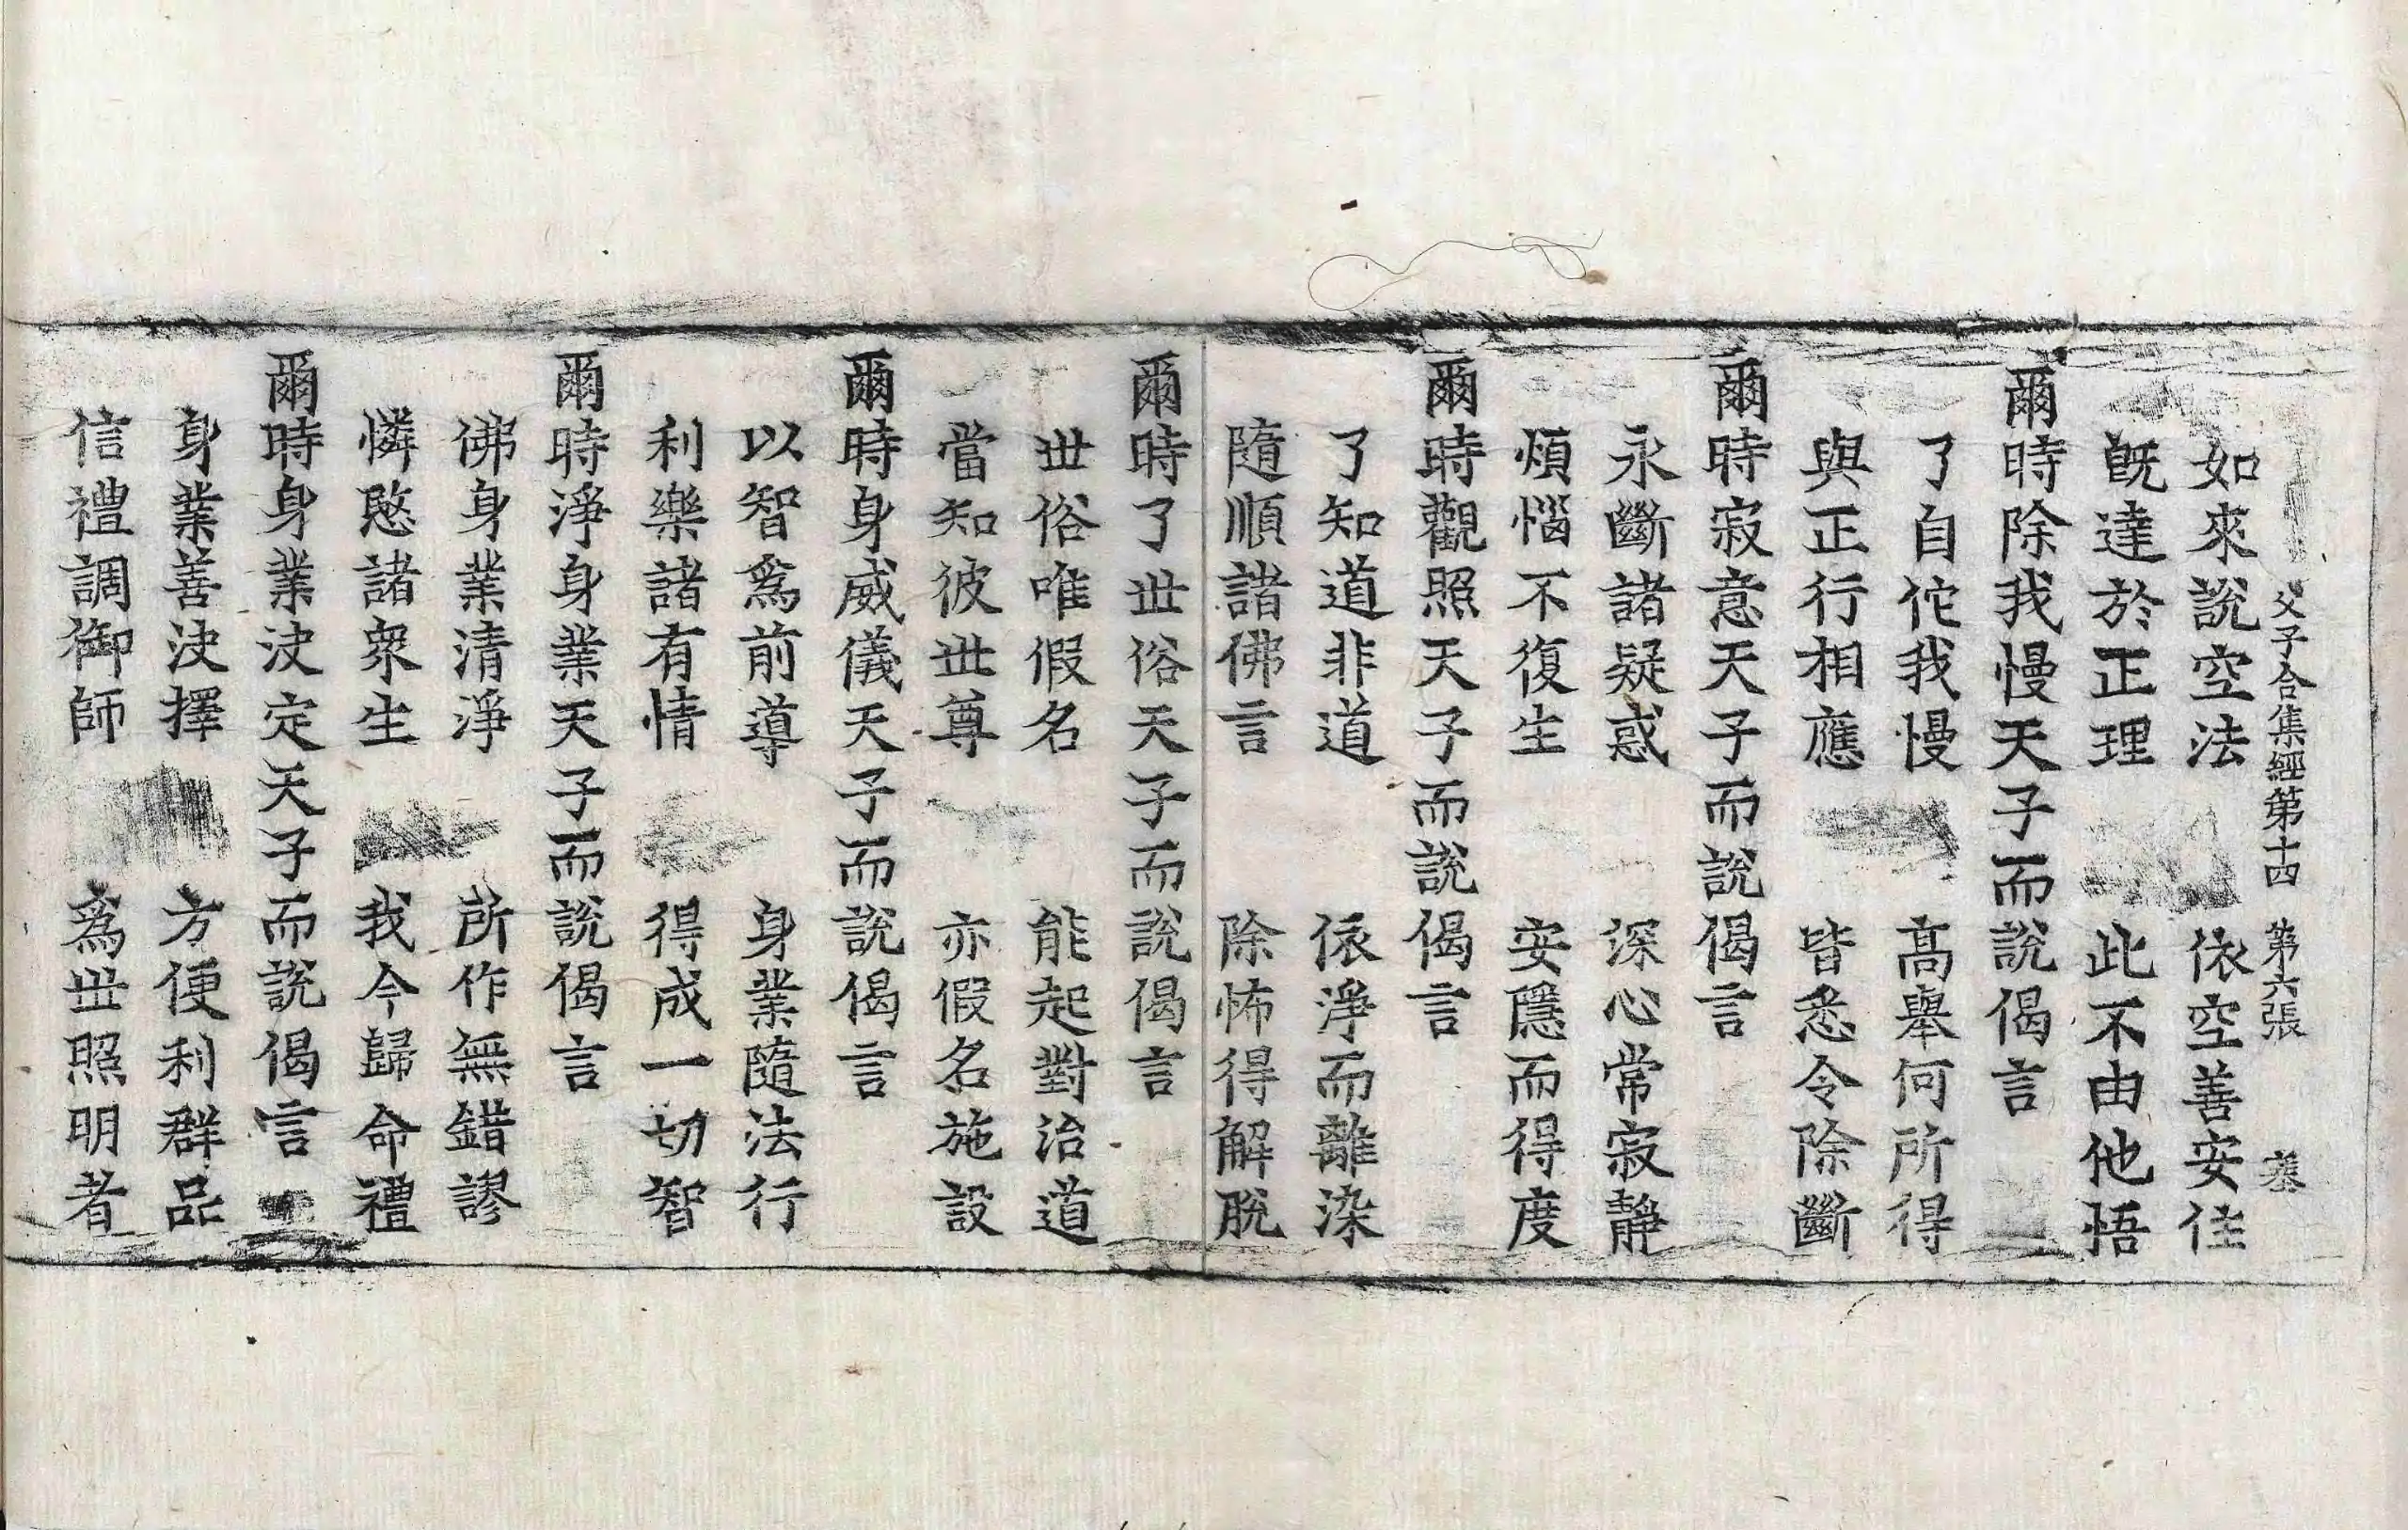 父子合集經第十四 第六張 塞
如來說空法 依空善安住
旣達於正理 此不由他悟
爾時除我慢天子而說偈言
了自佗我慢 高舉何所得
與正行相應 皆悉令除斷
爾時寂意天子而說偈言
永斷諸疑惑 深心常寂靜
煩惱不復生 安隱而得度
爾時觀照天子而說偈言
了知道非道 依淨而離染
隨順諸佛言 除怖得解脫
爾時了世俗天子而說偈言
世俗唯假名 能起對治道
當知彼世尊 亦假名施設
爾時身威儀天子而說偈言
以智爲前導 身業隨法行
利樂諸有情 得成一切智
爾時淨身業天子而說偈言
佛身業清淨 所作無錯謬
憐愍諸衆生 我今歸命禮
爾時身業決定天子而說偈言
身業善決擇 方便利群品
信禮調御師 爲世照明者